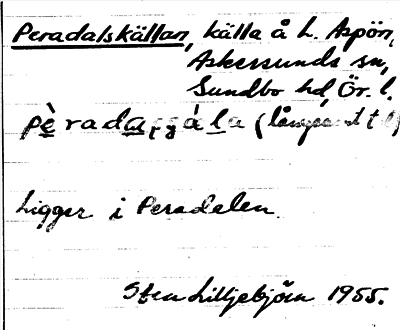 Peradalskällan, källa å L. Aspön,
Askersunds sn,
Sundbo hd, Ör. l.
Ligger i Peradalen.
Sten Lilljebjörn 1955.